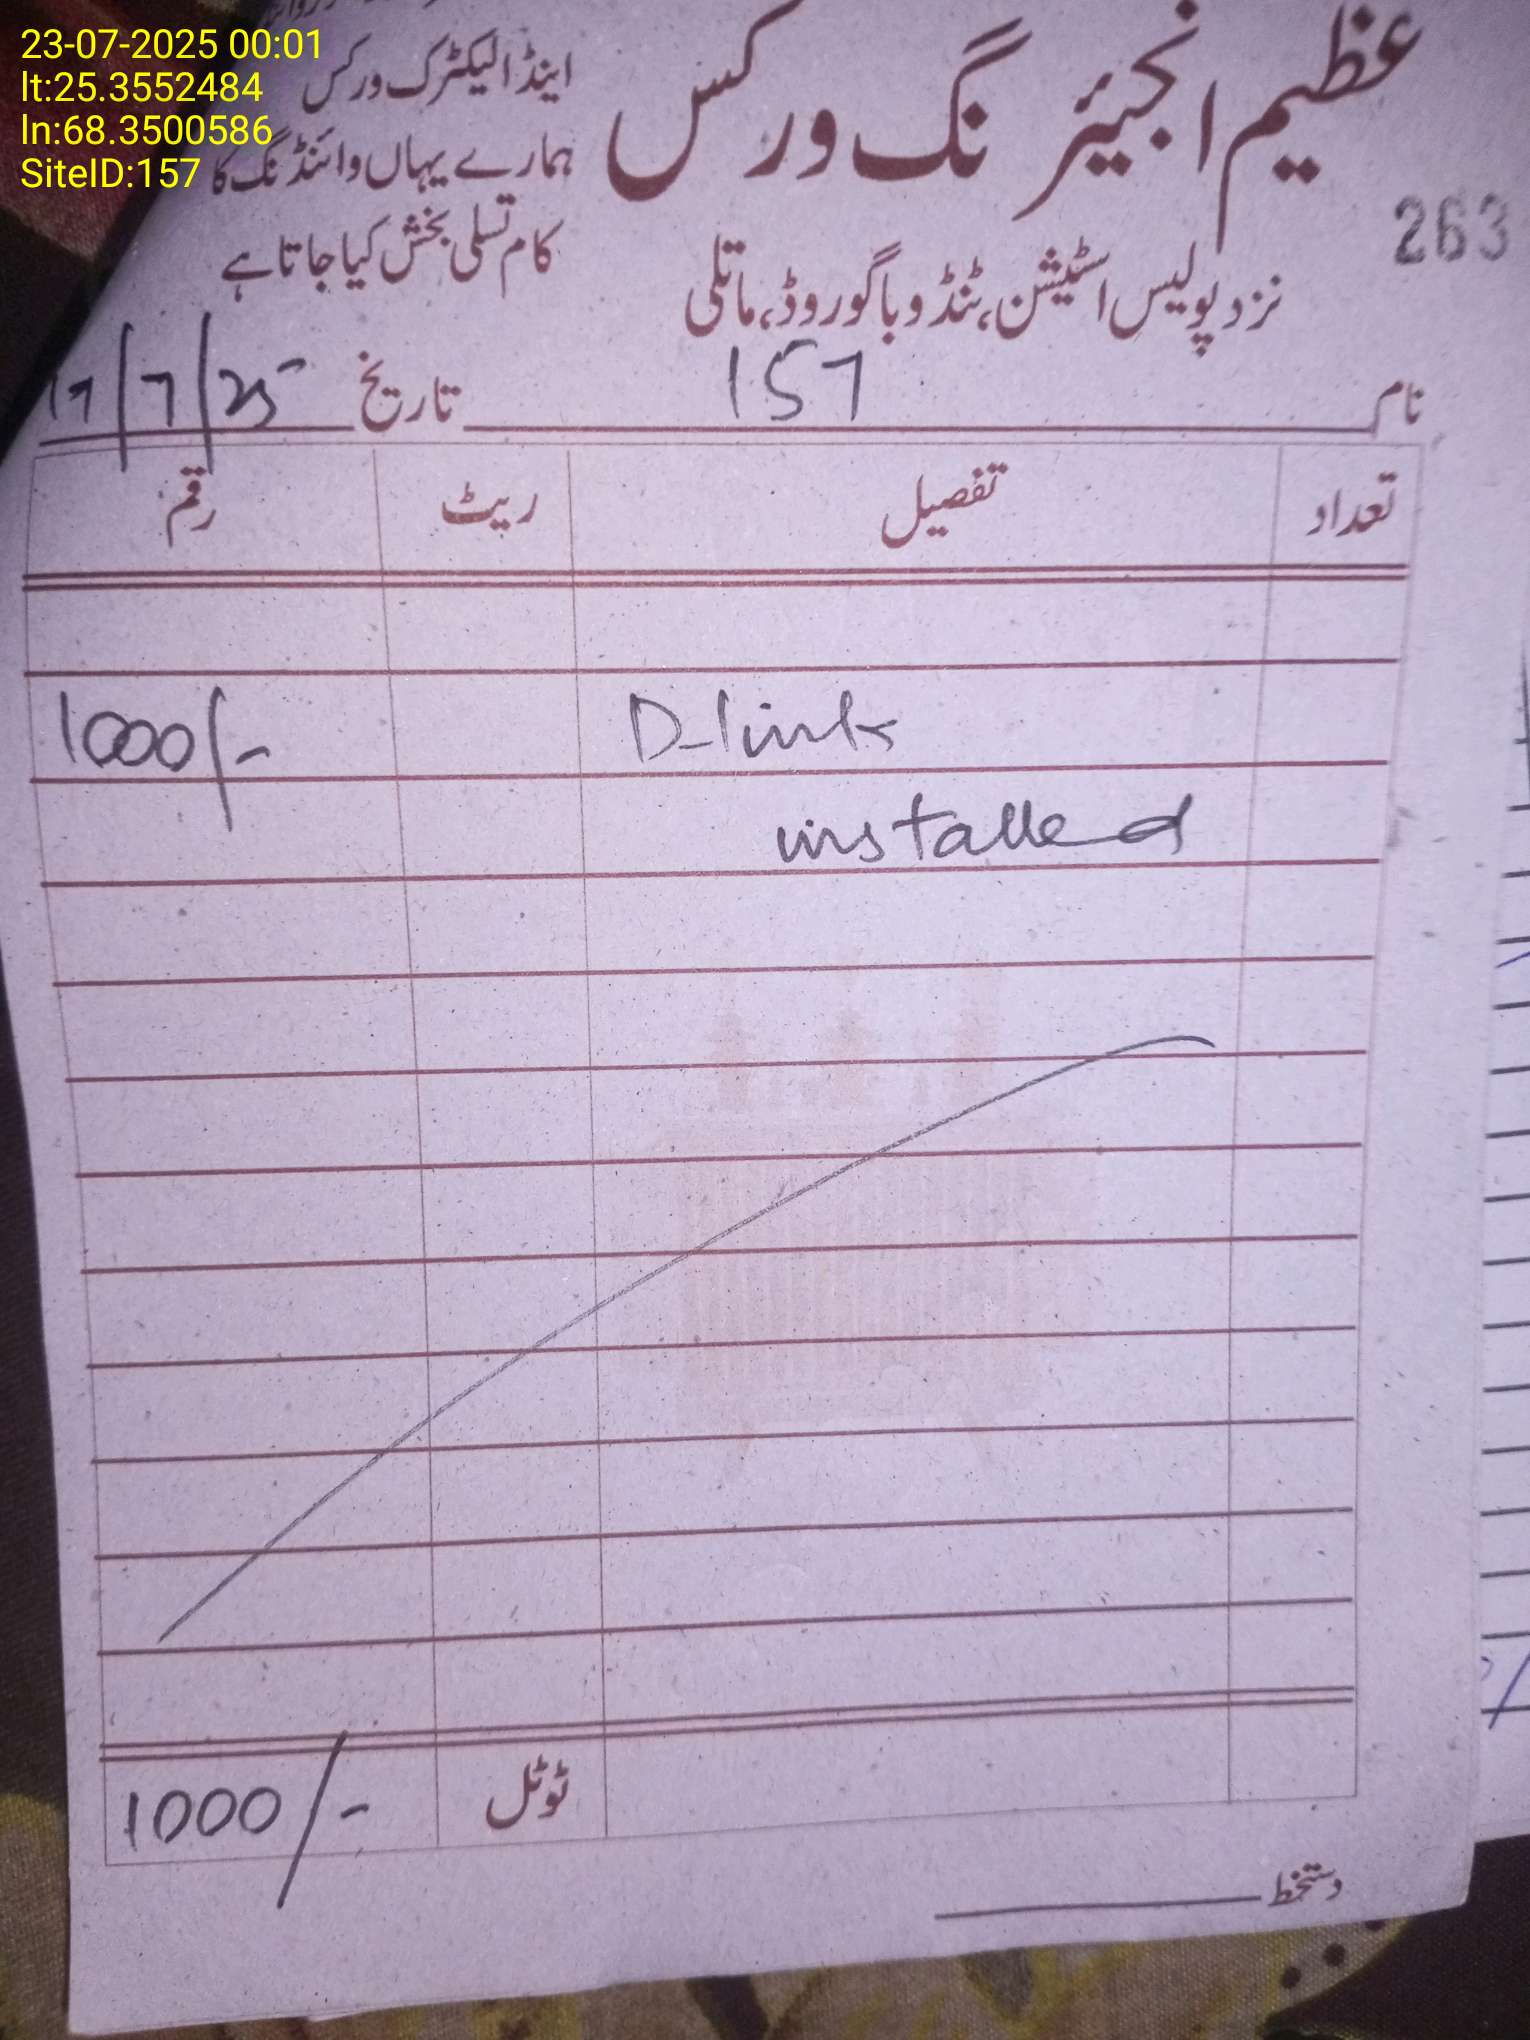 23-07-2025 00:01
lt:25.3552484
ln:68.3500586
SiteID:157
عظیم انجینئرنگ ورکس
اینڈ الیکٹرک ورکس
ہمارے یہاں وائنڈنگ کا
کام تسلی بخش کیا جاتا ہے
263
نزد پولیس اسٹیشن، ٹنڈو باگو روڈ، ماتلی
نام 157 تاریخ 17/7/25
تعداد تفصیل ریٹ رقم
D-link 1000/-
installed
ٹوٹل 1000/-
دستخط